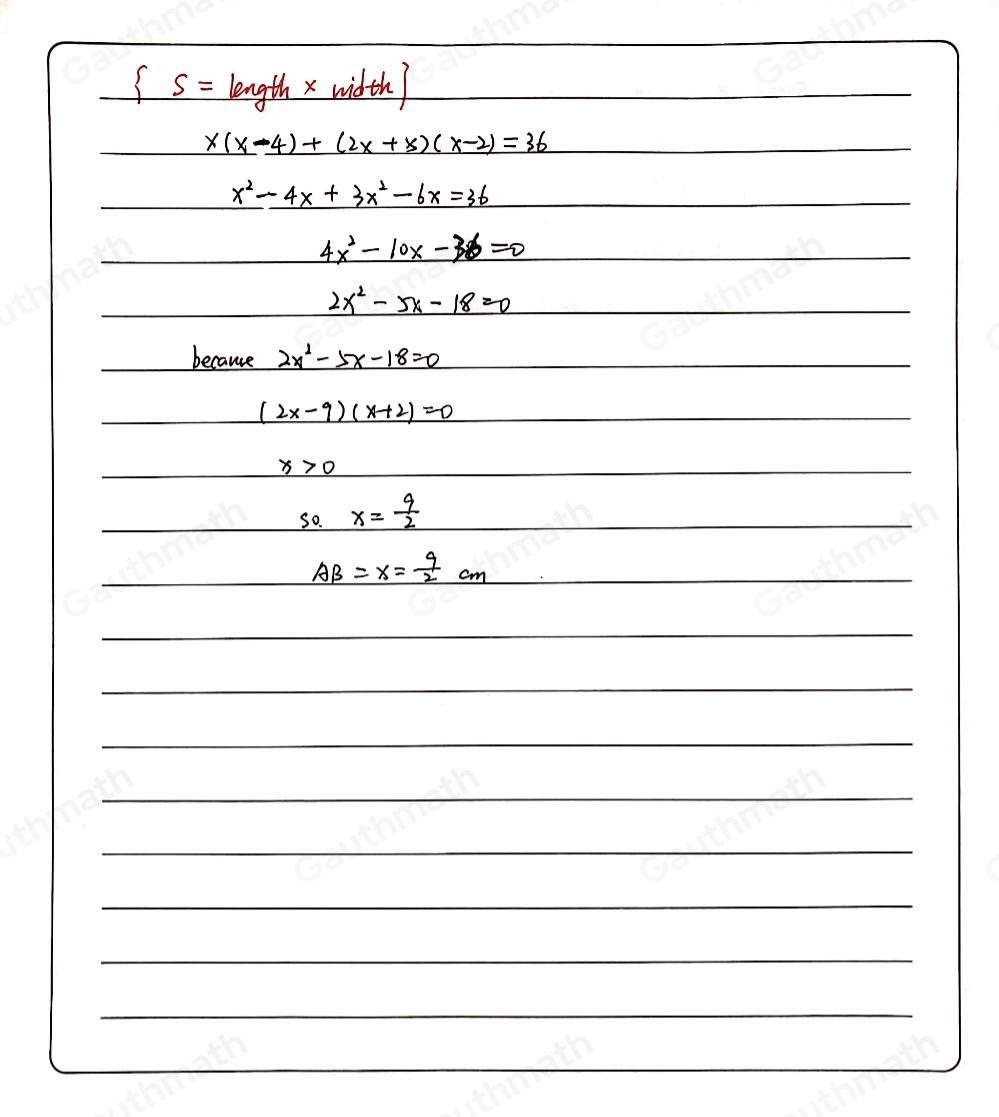 { S = length × width}
x(x-4) + (2x + x)(x-2) = 36
x² - 4x + 3x² - 6x = 36
4x² - 10x - 36 = 0
2x² - 5x - 18 = 0
because 2x² - 5x - 18 = 0
(2x - 9)(x+2) = 0
x > 0
so. x = 9/2
AB = x = 9/2 cm
Gauthmath